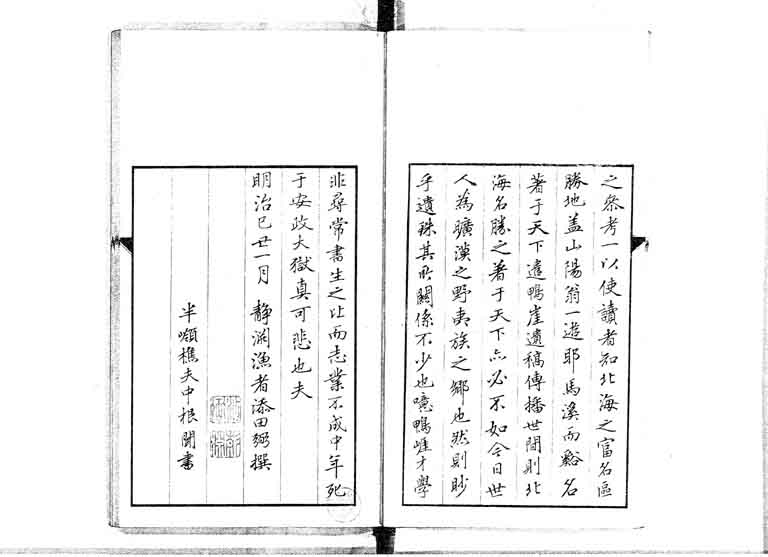 之參考一以使讀者知北海之富名區
勝地盖山陽翁一遊耶馬溪而谿名
著于天下遣鴨崖遺稿傳播世間則北
海名勝之著于天下亦必不如今日世
人為曠漠之野夷族之鄉也然則眇
乎遺珠其所關係不少也噫鴨崖才學
非尋常書生之比而志業不成中年死
于安政大獄真可悲也夫
明治己丑一月 静淵漁者添田弼撰
半嶺樵夫中根聞書